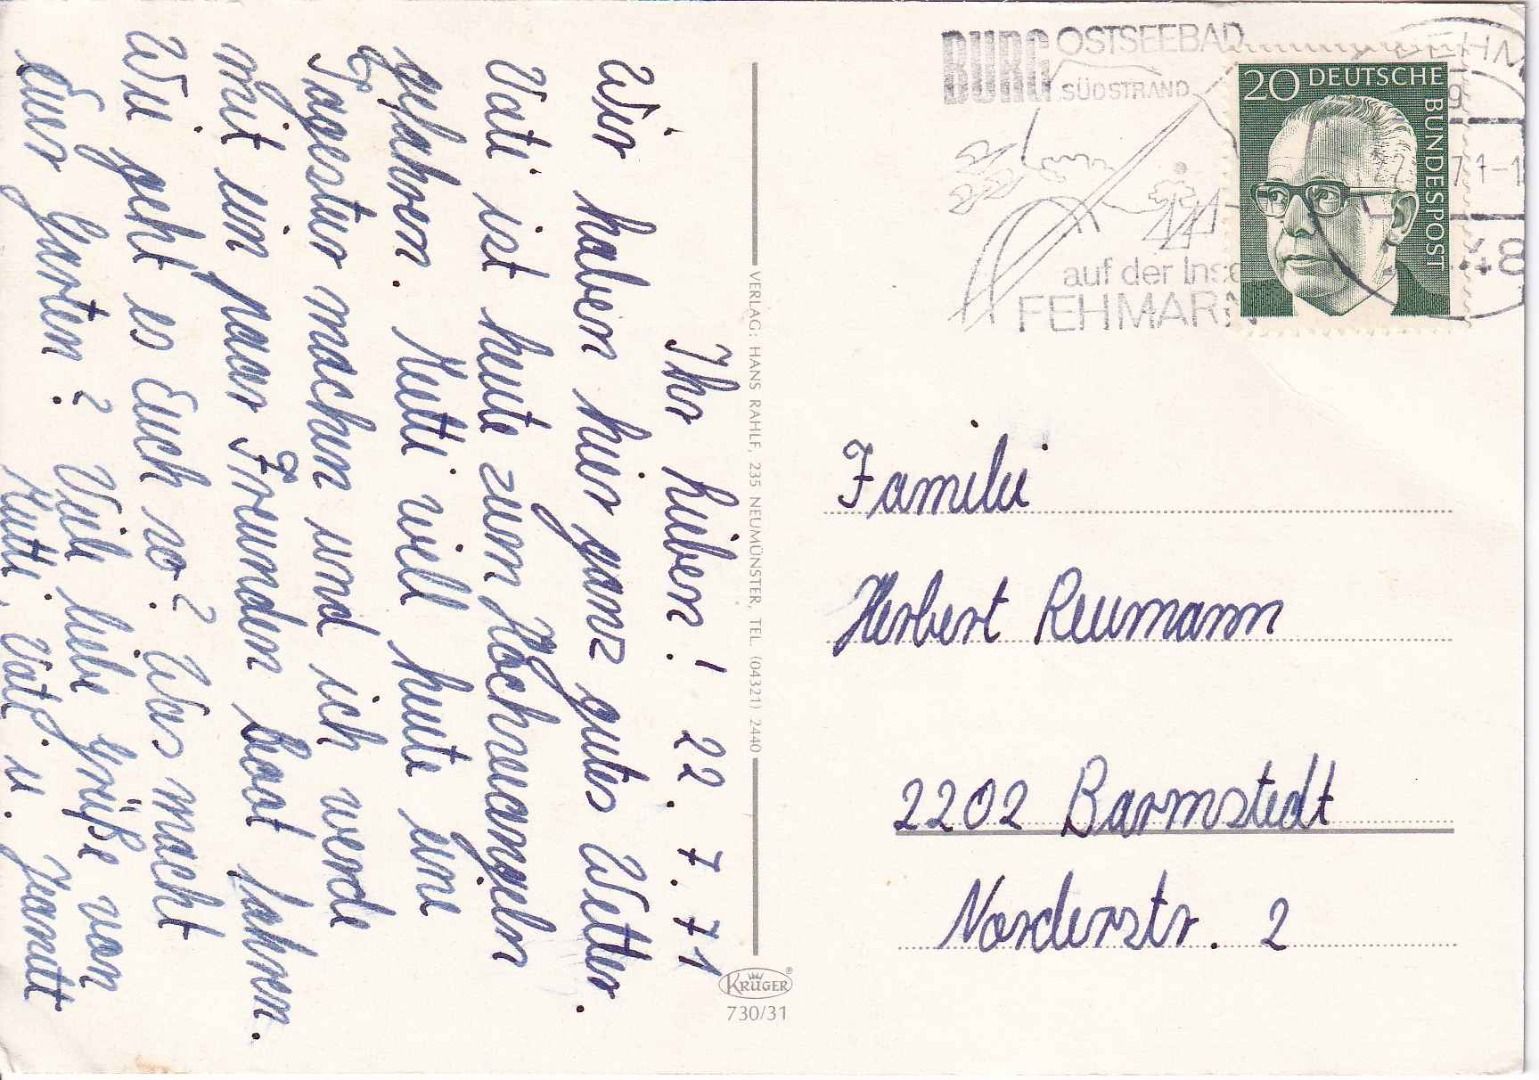 Ihr lieben! 22.7.71
Wir haben hier ganz gutes Wetter.
Vati ist heute zum Hochseeangeln
gefahren. Mutti will heute eine
Tagestur machen und ich werde
mit ein paar Freunden Boot fahren.
Wie geht es Euch so? Was macht
Euer Garten? Viele liebe Grüße von
Mutti, Vati u.
VERLAG: HANS RAHLF, 235 NEUMÜNSTER, TEL. (04321) 2440
KRÜGER
730/31
BURG OSTSEEBAD
SÜDSTRAND
auf der Inse
FEHMARN
20 DEUTSCHE
BUNDESPOST
Familie
Herbert Reumann
2202 Barmstedt
Norderstr. 2